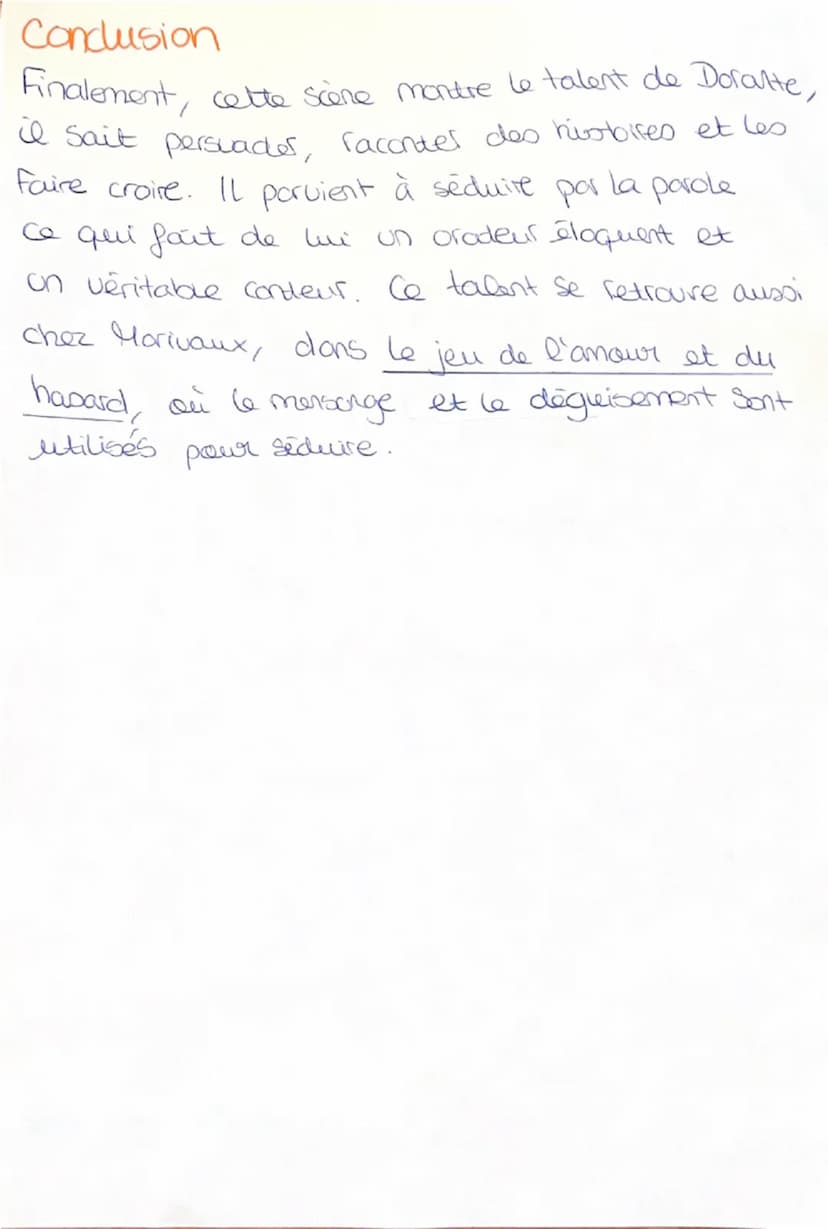 Conclusion
Finalement, cette scène montre le talent de Dorante,
il sait persuader, raconter des histoires et les
faire croire. Il parvient à séduire par la parole
ce qui fait de lui un orateur éloquent et
un véritable conteur. Ce talent se retrouve aussi
chez Marivaux, dans le jeu de l'amour et du
hasard, où le mensonge et le déguisement sont
utilisés pour séduire.